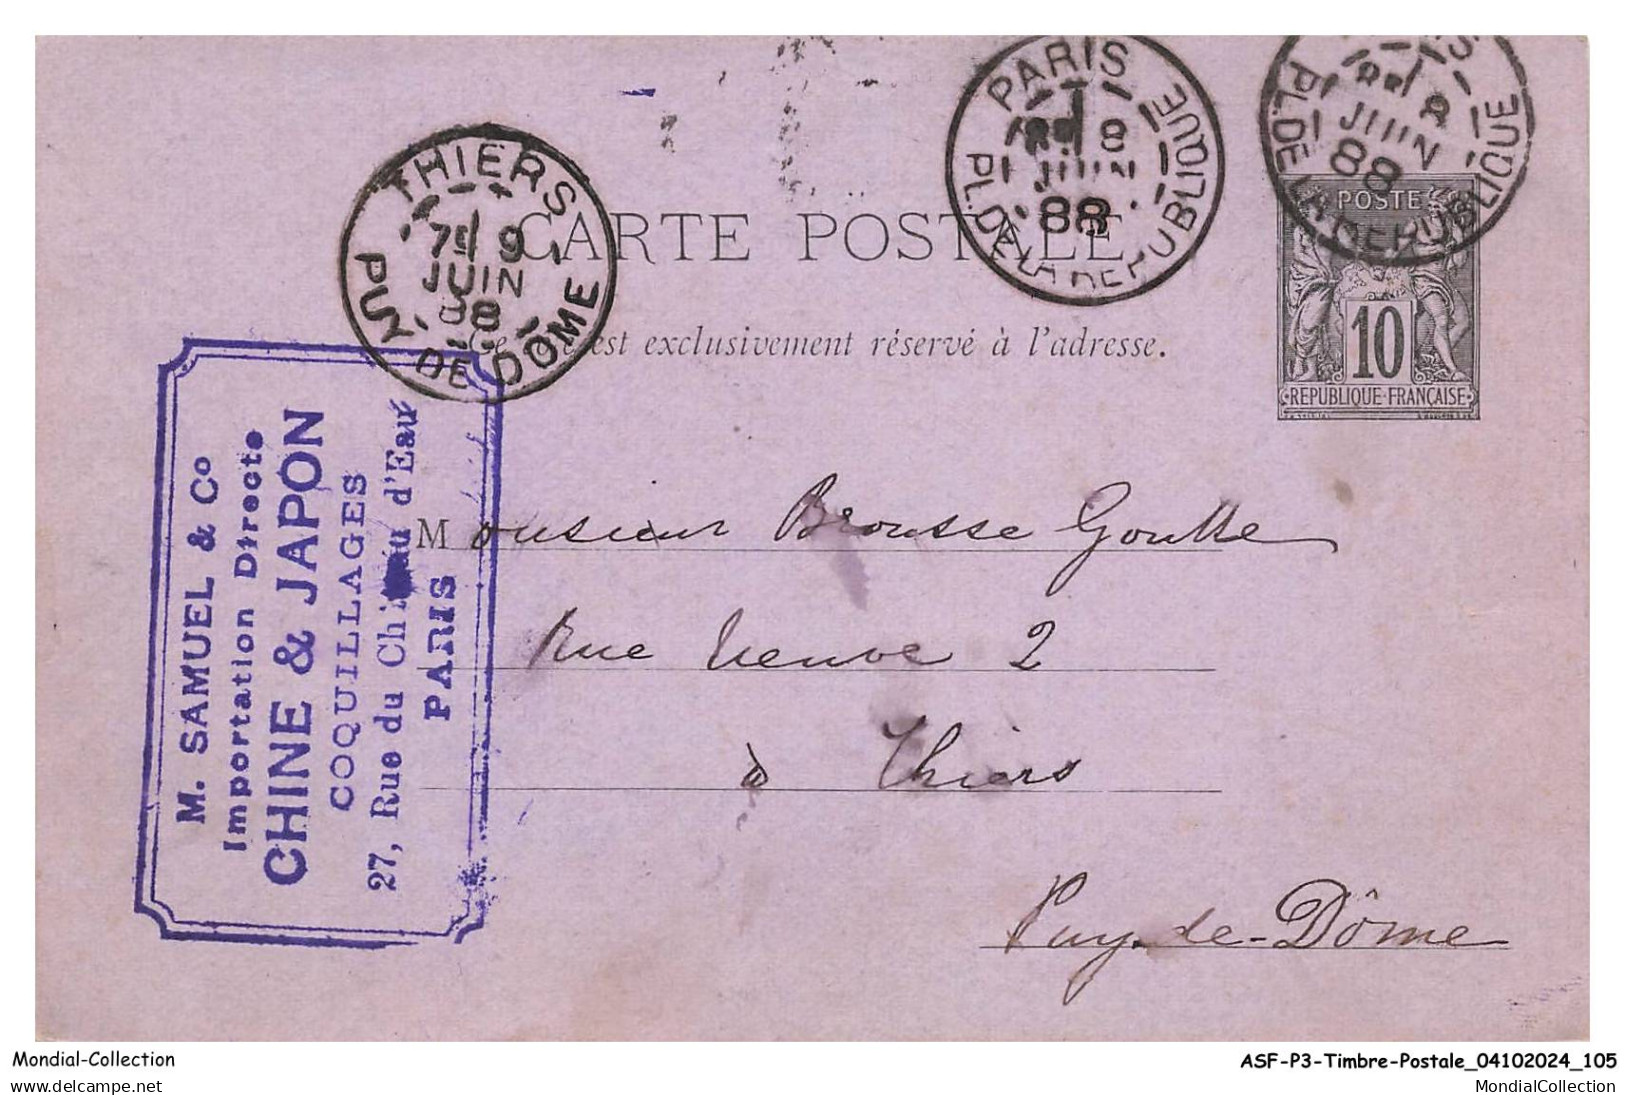 PARIS
8
JUIN
88
PL. DE LA REPUBLIQUE
JUIN
88
PL. DE LA REPUBLIQUE
THIERS
7E 9
JUIN
88
PUY DE DÔME
CARTE POSTALE
est exclusivement réservé à l'adresse.
POSTE
10
RÉPUBLIQUE FRANÇAISE
M. SAMUEL & Co
Importation Directe
CHINE & JAPON
COQUILLAGES
27, Rue du Château d'Eau
PARIS
Monsieur Brousse Goutte
Rue Neuve 2
à Thiers
Puy-de-Dôme
Mondial-Collection
ASF-P3-Timbre-Postale_04102024_105
delcampe.net
MondialCollection